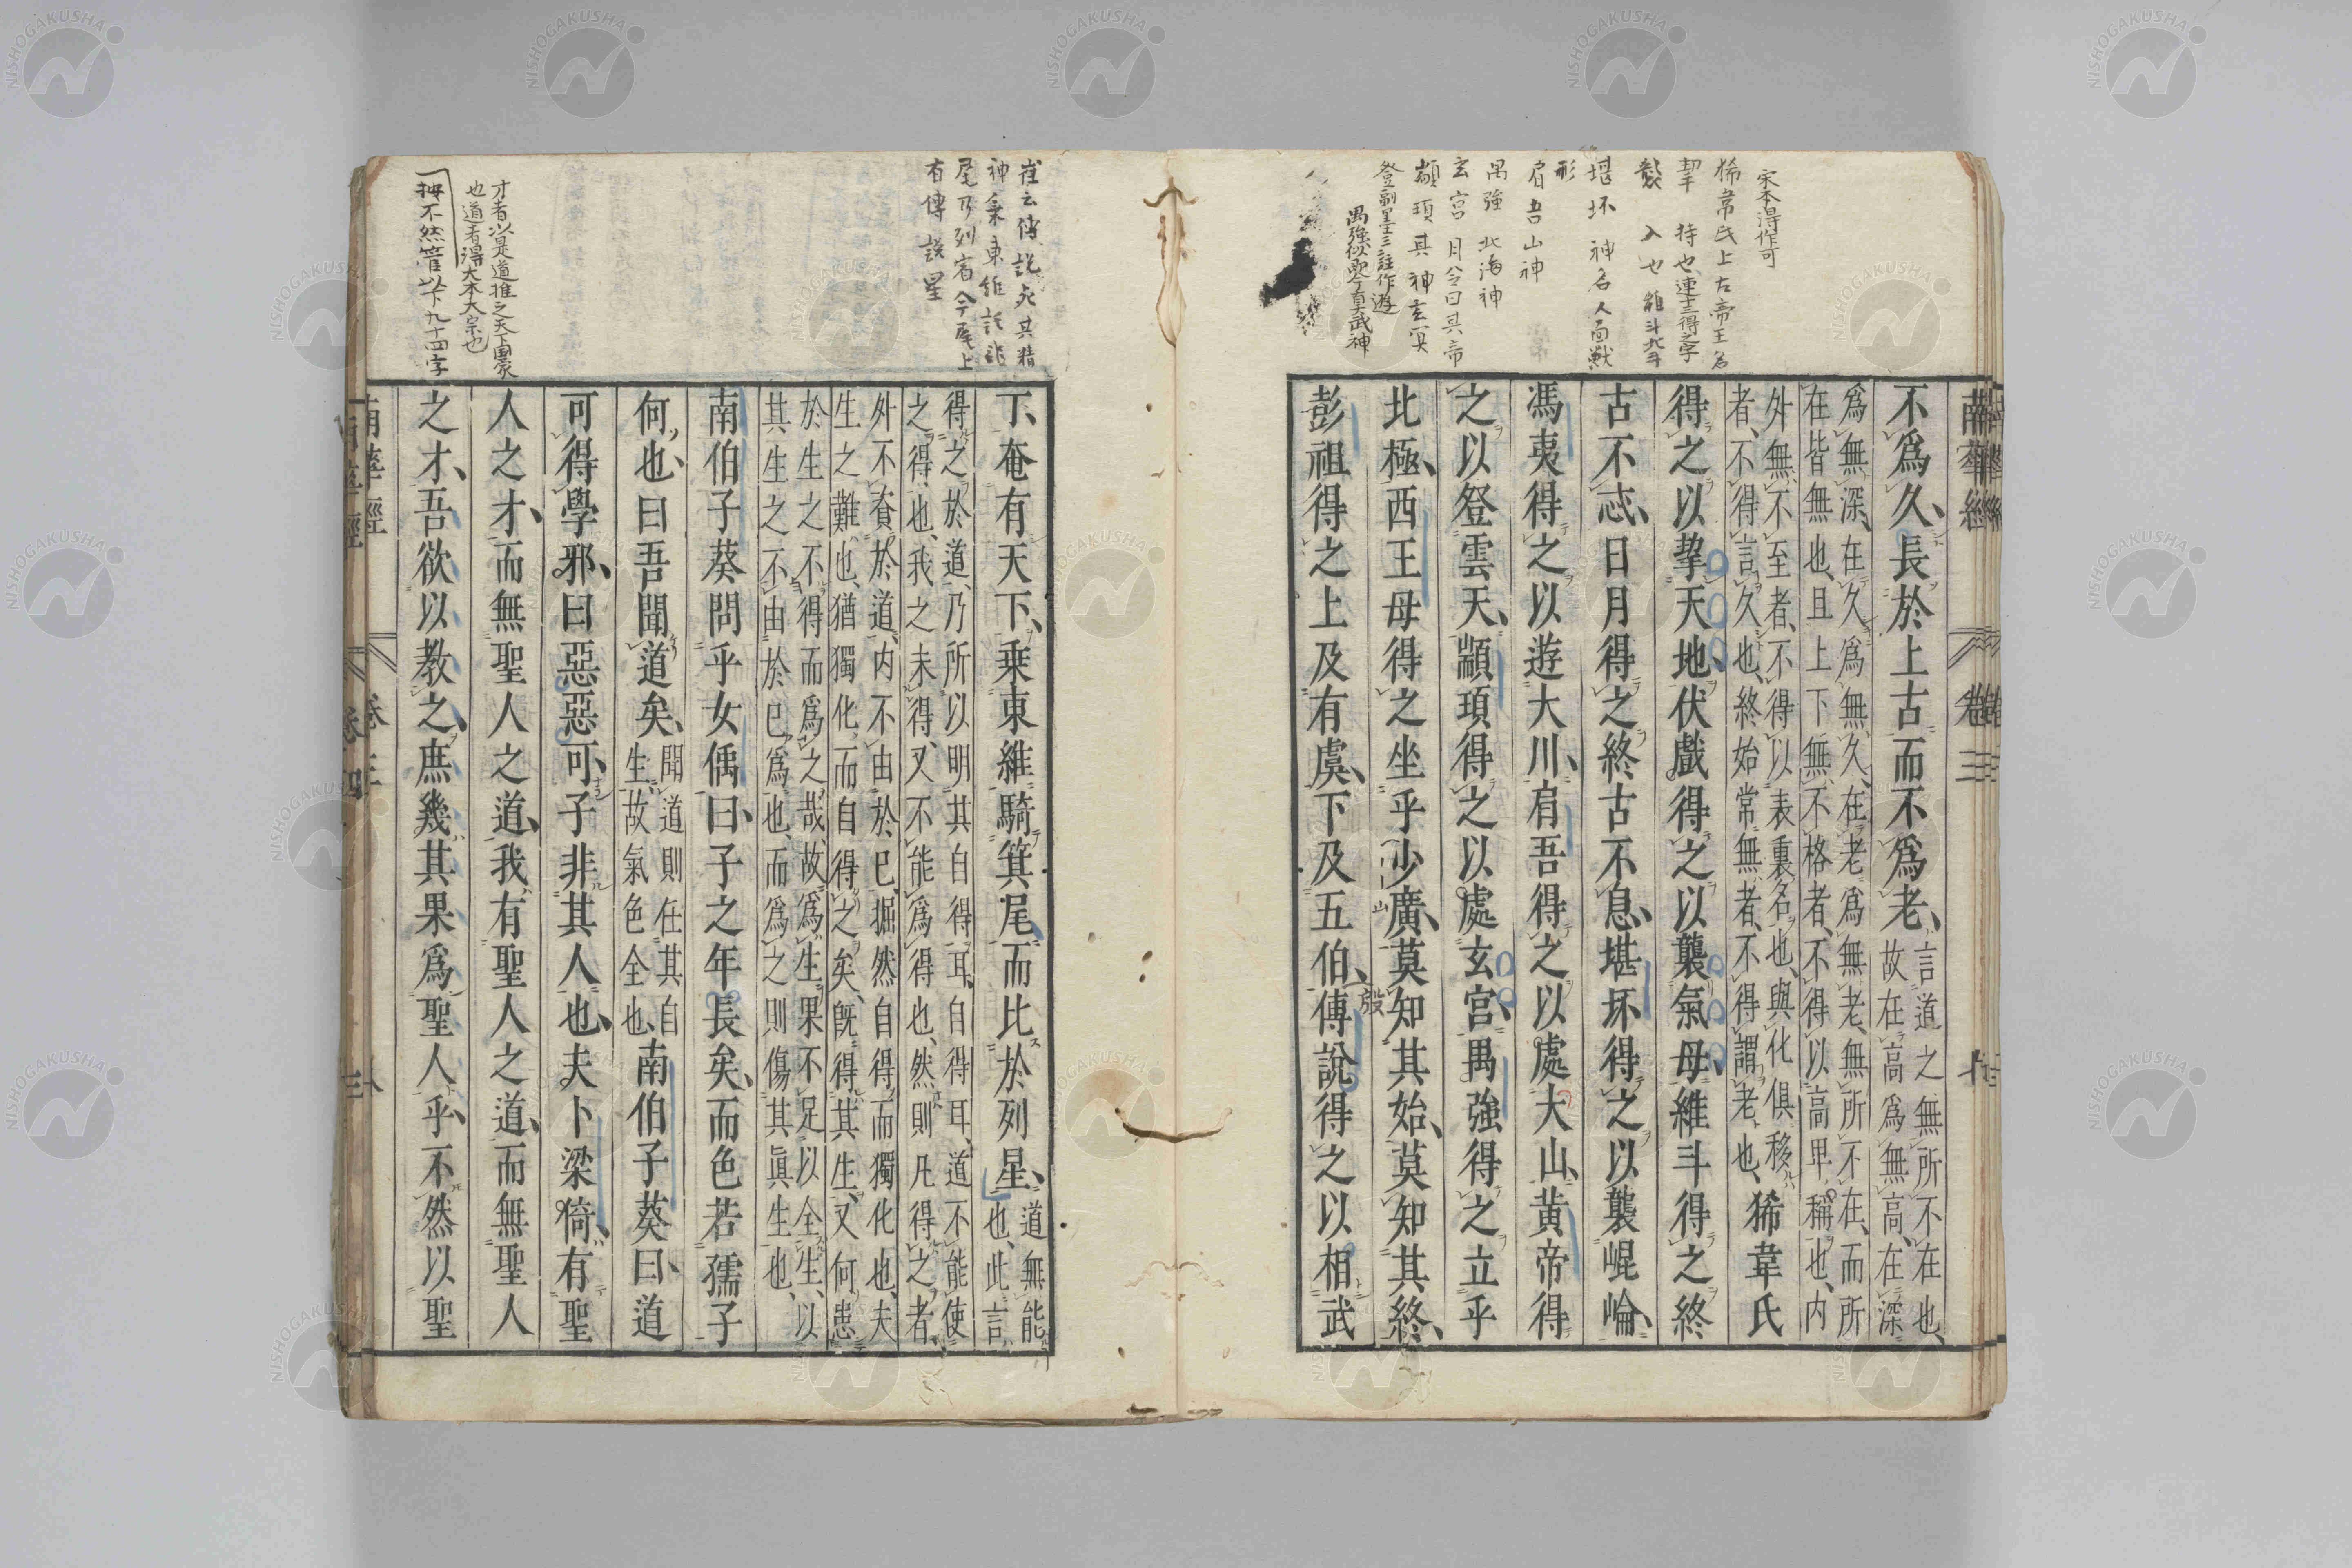 宋本得作可
狶韋氏上古帝王名
挈 持也連三得之字
襲 入也維斗北斗
堪坏 神名人面獸
形
肩吾山神
禺強 北海神
玄宮 月令曰其帝
顓頊其神玄冥
登副墨三註作遊
南華經 卷三
不爲久、長於上古而不爲老、言道之無所不在也、
故在高爲無高、在深
爲無深、在久爲無久、在老爲無老、無所不在、而所
在皆無也、且上下無不格者、不得以高卑稱也、内
外無不至者、不得以表裏名也、與化俱移
者、不得言久也、終始常無者、不得謂老也、狶韋氏
得之以挈天地、伏戲得之以襲氣母、維斗得之終
古不忒、日月得之終古不息、堪坏得之以襲崐崘、
馮夷得之以遊大川、肩吾得之以處大山、黄帝得
之以登雲天、顓頊得之以處玄宮、禺強得之立乎
北極、西王母得之坐乎少廣、莫知其始、莫知其終、
彭祖得之上及有虞、下及五伯、傅說得之以相武
崔云傅說死其精
神乘東維託龍
尾乃列宿今尾上
有傅說星
才者以是道推之天下國家
也道者得大本大宗也
丁、奄有天下、乗東維騎箕尾而比於列星、道無能
也、此言
得之於道、乃所以明其自得耳、自得耳、道不能使
之得也、我之未得、又不能爲得也、然則凡得之者、
外不資於道、内不由於已、掘然自得而獨化也、夫
生之難也、猶獨化而自得之矣、旣得其生、又何患
於生之不得而爲之哉、故爲生果不足以全生、以
其生之不由於已爲也、而爲之則傷其眞生也、
南伯子葵問乎女偊曰、子之年長矣、而色若孺子
何也、曰吾聞道矣、聞道則任其自
生故氣色全也、南伯子葵曰、道
可得學邪、曰惡惡可、子非其人也、夫卜梁猗、有聖
人之才、而無聖人之道、我有聖人之道、而無聖人
之才、吾欲以教之、庶幾其果爲聖人乎、不然以聖